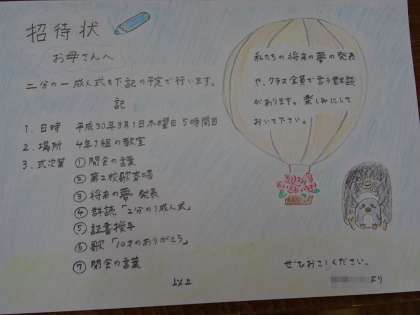 招待状
お母さんへ
二分の一成人式を下記の予定で行います。
記
1. 日時 平成30年3月1日木曜日5時間目
2. 場所 4年1組の教室
3. 式次第 ①開会の言葉
②第二校歌斉唱
③将来の夢発表
④群読「2分の1成人式」
⑤証書授与
⑥歌「10才のありがとう」
⑦閉会の言葉
以上
私たちの将来の夢の発表
や、クラス全員で言う群読
があります。楽しみにして
おいて下さい。
ぜひおこしください。
より